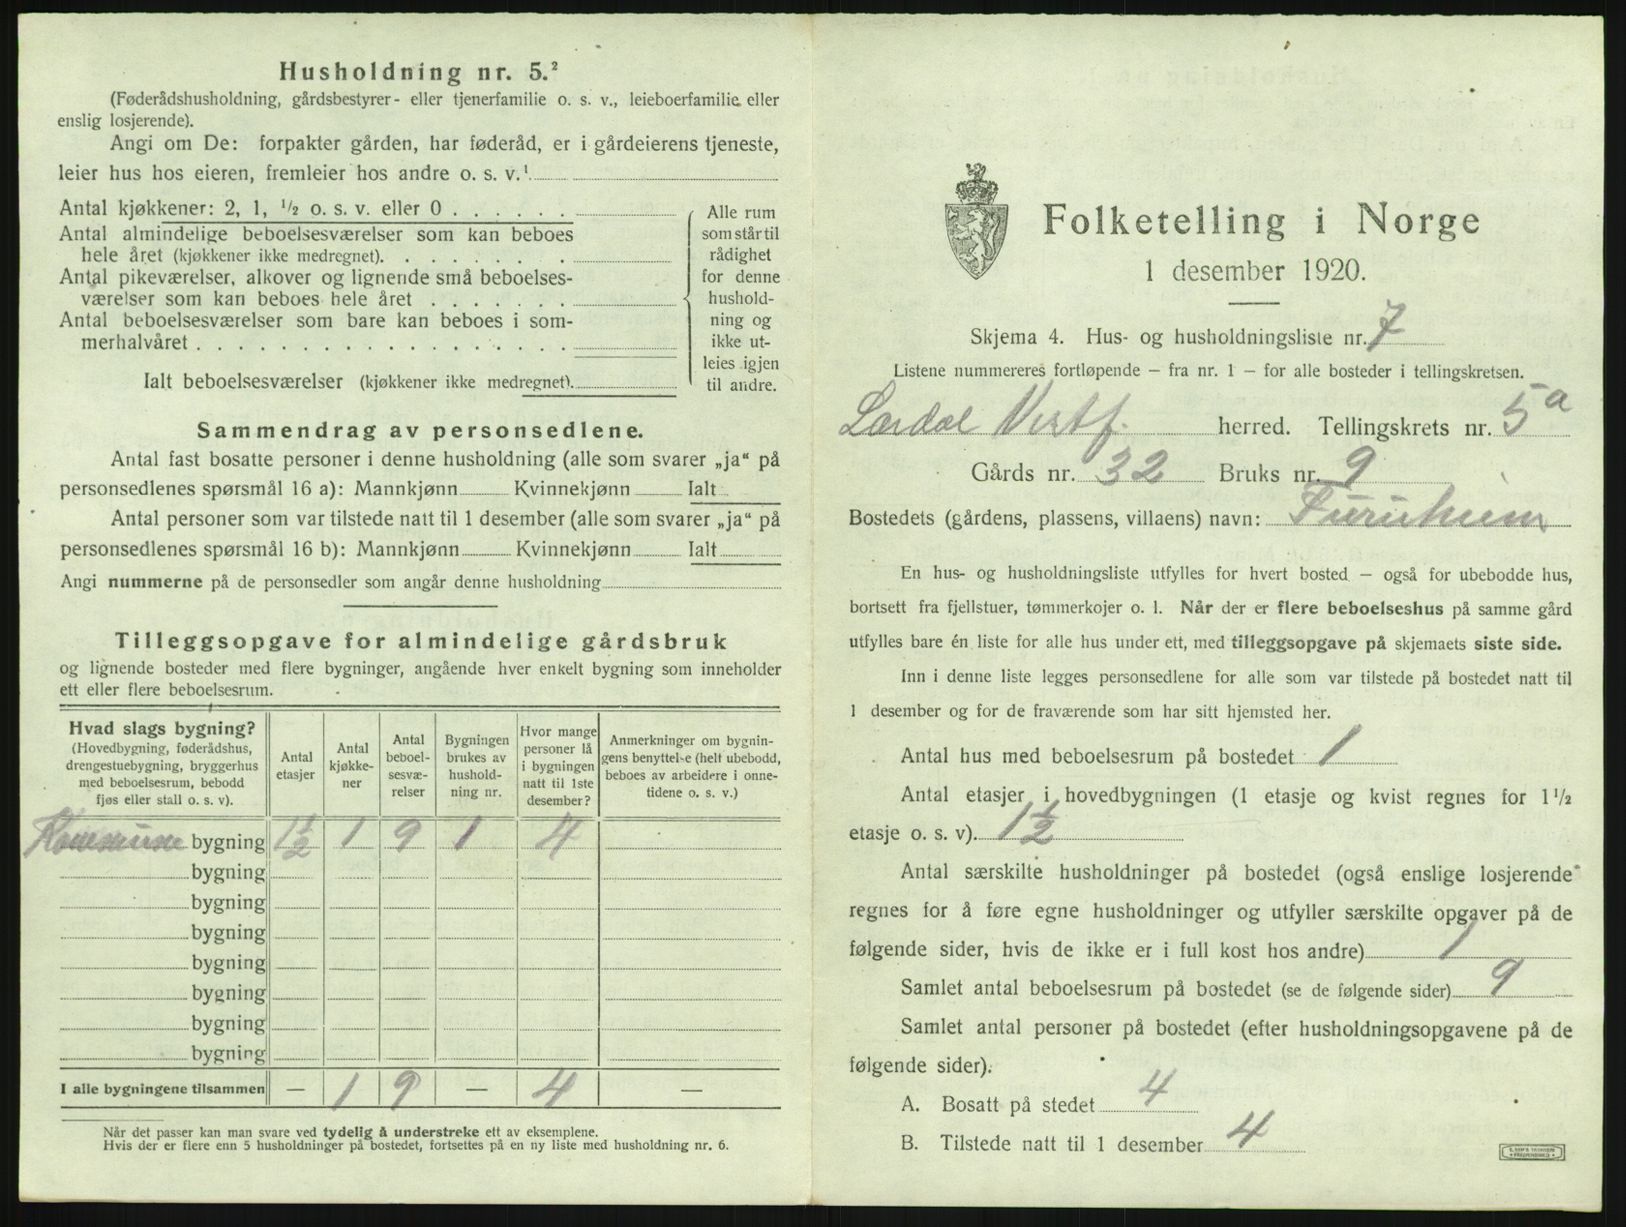 Husholdning nr. 5.²
(Føderådshusholdning, gårdsbestyrer- eller tjenerfamilie o. s. v., leieboerfamilie eller
enslig losjerende).
Angi om De: forpakter gården, har føderåd, er i gårdeierens tjeneste,
leier hus hos eieren, fremleier hos andre o. s. v.¹
Antal kjøkkener: 2, 1, ½ o. s. v. eller 0 . . . . . .
Antal almindelige beboelsesværelser som kan beboes
hele året (kjøkkener ikke medregnet). . . . . . . .
Antal pikeværelser, alkover og lignende små beboelses-
værelser som kan beboes hele året . . . . . . .
Antal beboelsesværelser som bare kan beboes i som-
merhalvåret . . . . . . . . . . . . . . . . . .
Ialt beboelsesværelser (kjøkkener ikke medregnet).
Alle rum
som står til
rådighet
for denne
hushold-
ning og
ikke ut-
leies igjen
til andre.
Sammendrag av personsedlene.
Antal fast bosatte personer i denne husholdning (alle som svarer „ja“ på
personsedlenes spørsmål 16 a): Mannkjønn Kvinnekjønn Ialt
Antal personer som var tilstede natt til 1 desember (alle som svarer „ja“ på
personsedlenes spørsmål 16 b): Mannkjønn Kvinnekjønn Ialt
Angi nummerne på de personsedler som angår denne husholdning
Tilleggsopgave for almindelige gårdsbruk
og lignende bosteder med flere bygninger, angående hver enkelt bygning som inneholder
ett eller flere beboelsesrum.
Hvad slags bygning?
(Hovedbygning, føderådshus,
drengestuebygning, bryggerhus
med beboelsesrum, bebodd
fjøs eller stall o. s. v).
Antal
etasjer
Antal
kjøkke-
ner
Antal
beboel-
sesvæ-
relser
Bygningen
brukes av
hushold-
ning nr.
Hvor mange
personer lå
i bygningen
natt til 1ste
desember?
Anmerkninger om bygnin-
gens benyttelse (helt ubebodd,
beboes av arbeidere i onne-
tidene o. s. v.)
bygning 1½ 1 9 1 4
bygning
bygning
bygning
bygning
bygning
bygning
bygning
I alle bygningene tilsammen — 1 9 — 4 —
Når det passer kan man svare ved tydelig å understreke ett av eksemplene.
Hvis der er flere enn 5 husholdninger på bostedet, fortsettes på en ny liste med husholdning nr. 6.
Folketelling i Norge
1 desember 1920.
Skjema 4. Hus- og husholdningsliste nr. 7
Listene nummereres fortløpende — fra nr. 1 — for alle bosteder i tellingskretsen.
Lardal Vestf. herred. Tellingskrets nr. 5a
Gårds nr. 32 Bruks nr. 9
Bostedets (gårdens, plassens, villaens) navn: Furuheim
En hus- og husholdningsliste utfylles for hvert bosted — også for ubebodde hus,
bortsett fra fjellstuer, tømmerkojer o. l. Når der er flere beboelseshus på samme gård
utfylles bare én liste for alle hus under ett, med tilleggsopgave på skjemaets siste side.
Inn i denne liste legges personsedlene for alle som var tilstede på bostedet natt til
1 desember og for de fraværende som har sitt hjemsted her.
Antal hus med beboelsesrum på bostedet 1
Antal etasjer i hovedbygningen (1 etasje og kvist regnes for 1½
etasje o. s. v). 1½
Antal særskilte husholdninger på bostedet (også enslige losjerende
regnes for å føre egne husholdninger og utfyller særskilte opgaver på de
følgende sider, hvis de ikke er i full kost hos andre) 1
Samlet antal beboelsesrum på bostedet (se de følgende sider) 9
Samlet antal personer på bostedet (efter husholdningsopgavene på de
følgende sider).
A. Bosatt på stedet 4
B. Tilstede natt til 1 desember 4